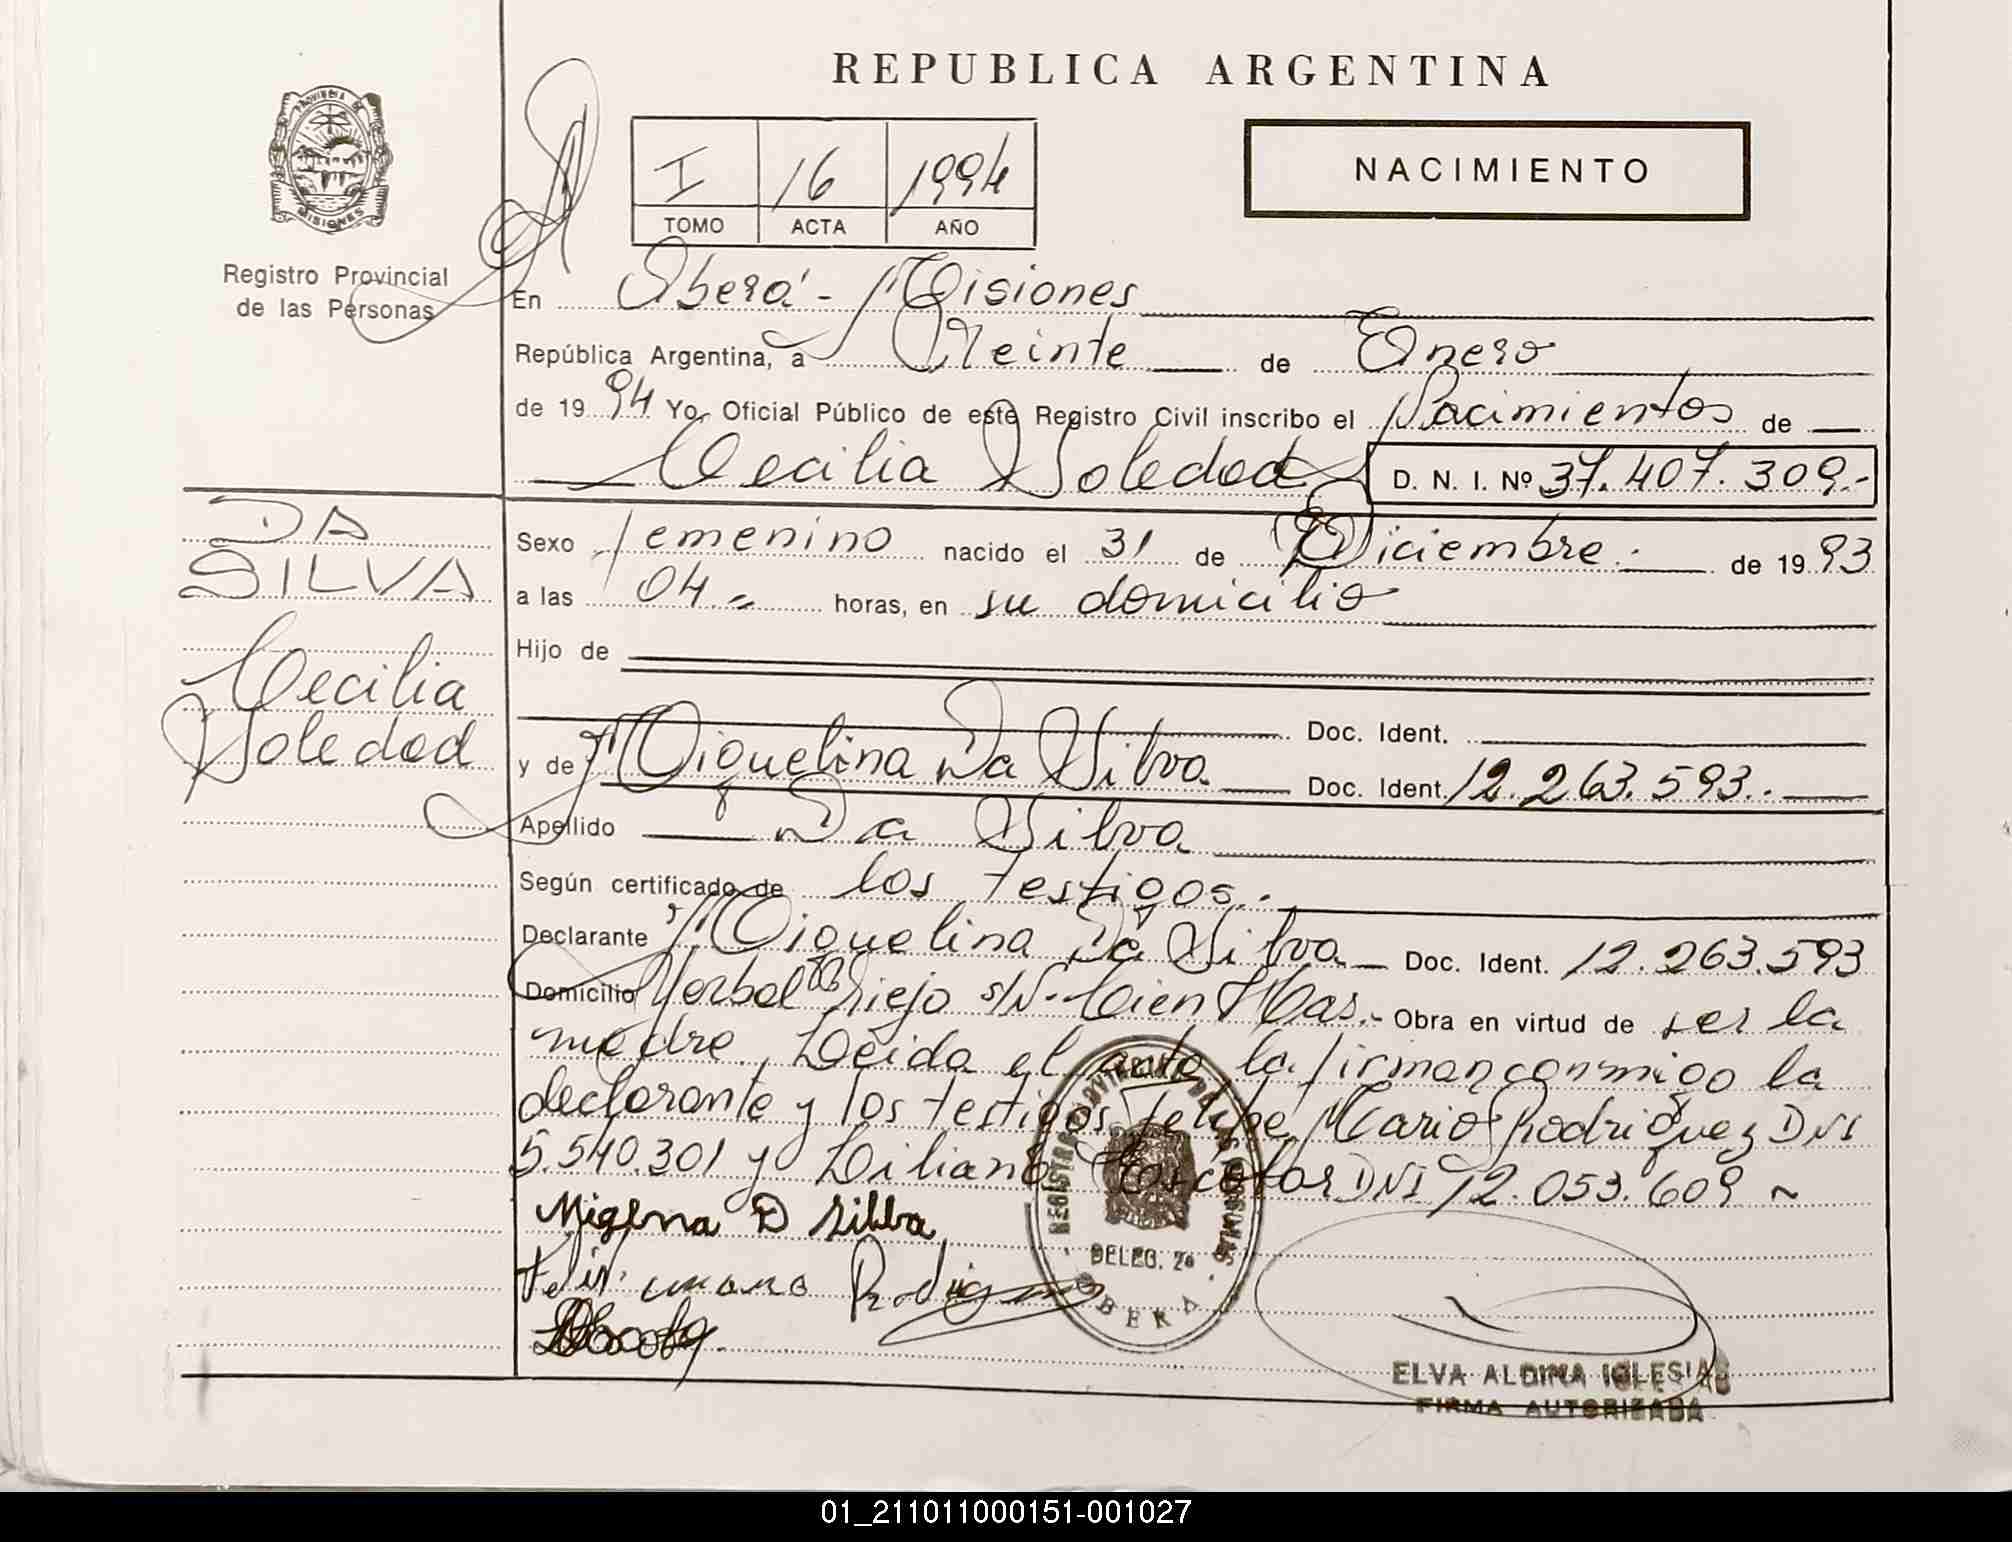 REPUBLICA ARGENTINA
PROVINCIA DE
MISIONES
Registro Provincial
de las Personas
I 16 1994
TOMO ACTA AÑO
NACIMIENTO
En Oberá - Misiones
República Argentina, a Veinte de Enero
de 1994 Yo, Oficial Público de este Registro Civil inscribo el Nacimientos de
Cecilia Soledad D. N. I. Nº 37.407.309.-
DA
SILVA
Cecilia
Soledad
Sexo femenino nacido el 31 de Diciembre.- de 1993
a las 04.- horas, en su domicilio
Hijo de
Doc. Ident.
y de Miquelina Da Silva Doc. Ident. 12.263.593.-
Apellido Da Silva
Según certificado de los testigos.-
Declarante Miquelina Da Silva Doc. Ident. 12.263.593
Domicilio Yerbal Viejo s/N- Cien Has.- Obra en virtud de ser la
madre. Leída el acta la firman conmigo la
declarante y los testigos Felipe Mario Rodriguez DNI
5.540.301 y Liliana Escobar DNI 12.053.609 ~
Migena D Silba
Rodrig
DELEG. 2ª
OBERA
ELVA ALDINA IGLESIAS
FIRMA AUTORIZADA
01_211011000151-001027